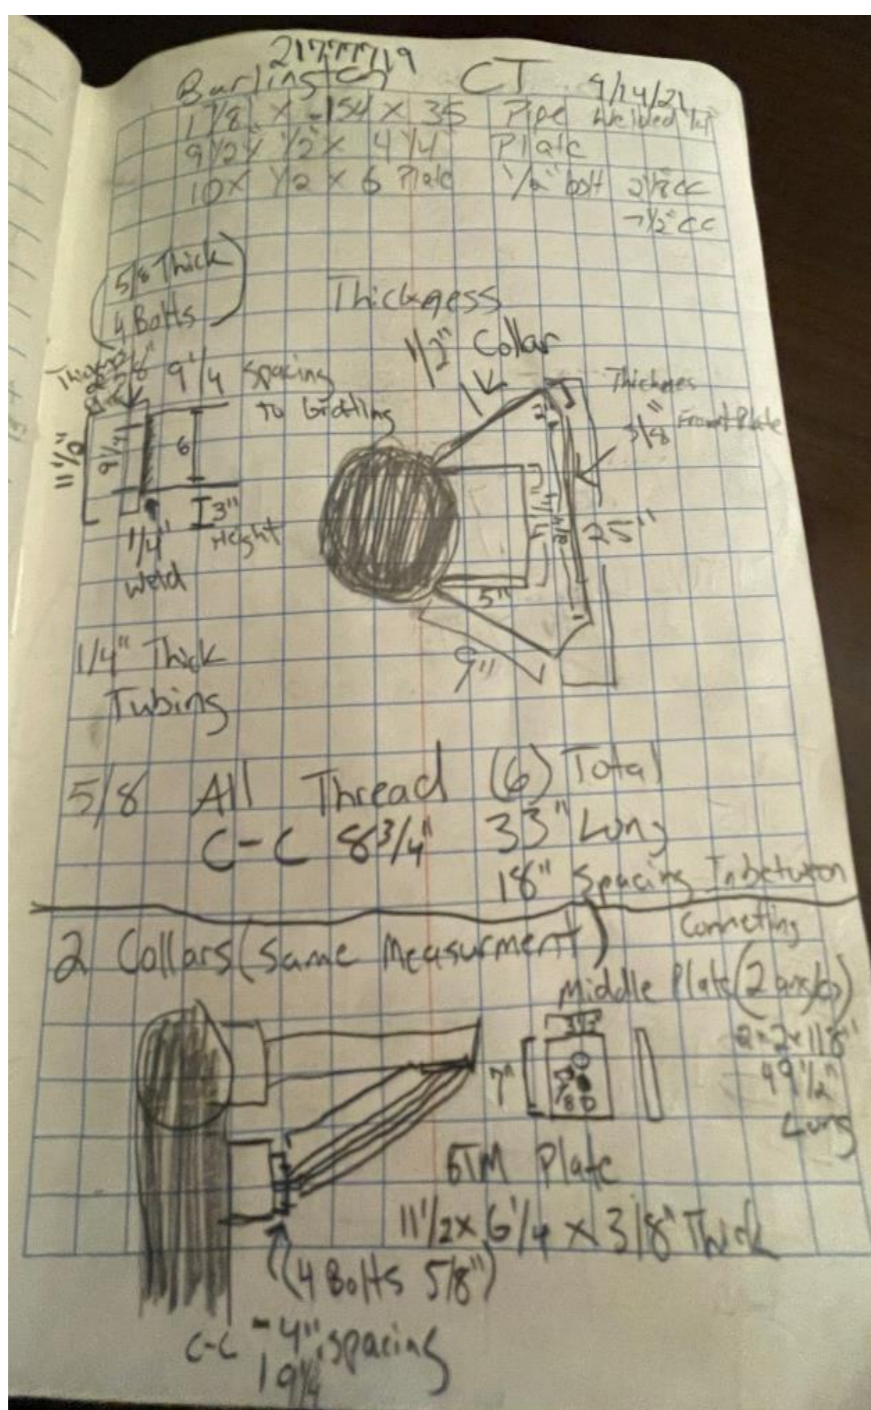 21777719
Burlington CT 9/14/21
1 7/8" x .154 x 35 Pipe Welded
9 1/2 x 1/2 x 4 1/4 Plate
10 x 1/2 x 6 Plate 1/2" bolt 2 1/8 CC
7 1/2" CC
5/8 Thick
4 Bolts
Thickness
1/2" Collar
Thickness
3/8"
9 1/4 spacing
to
Thicknes
3/8" Front Plate
2"
11 1/2"
9 1/4
6
3"
Height
1/4"
Weld
25"
5"
9"
1/4" Thick
Tubing
5/8 All Thread (6) Total
C-C 8 3/4" 33" Long
18" Spacing Inbetween
2 Collars (same Measurment)
Conneting
Middle Plate (2 angles)
2x2x1/8"
49 1/2"
Long
7"
BTM Plate
11 1/2 x 6 1/4 x 3/8" Thick
(4 Bolts 5/8")
C-C - 4" spacing
9 1/4